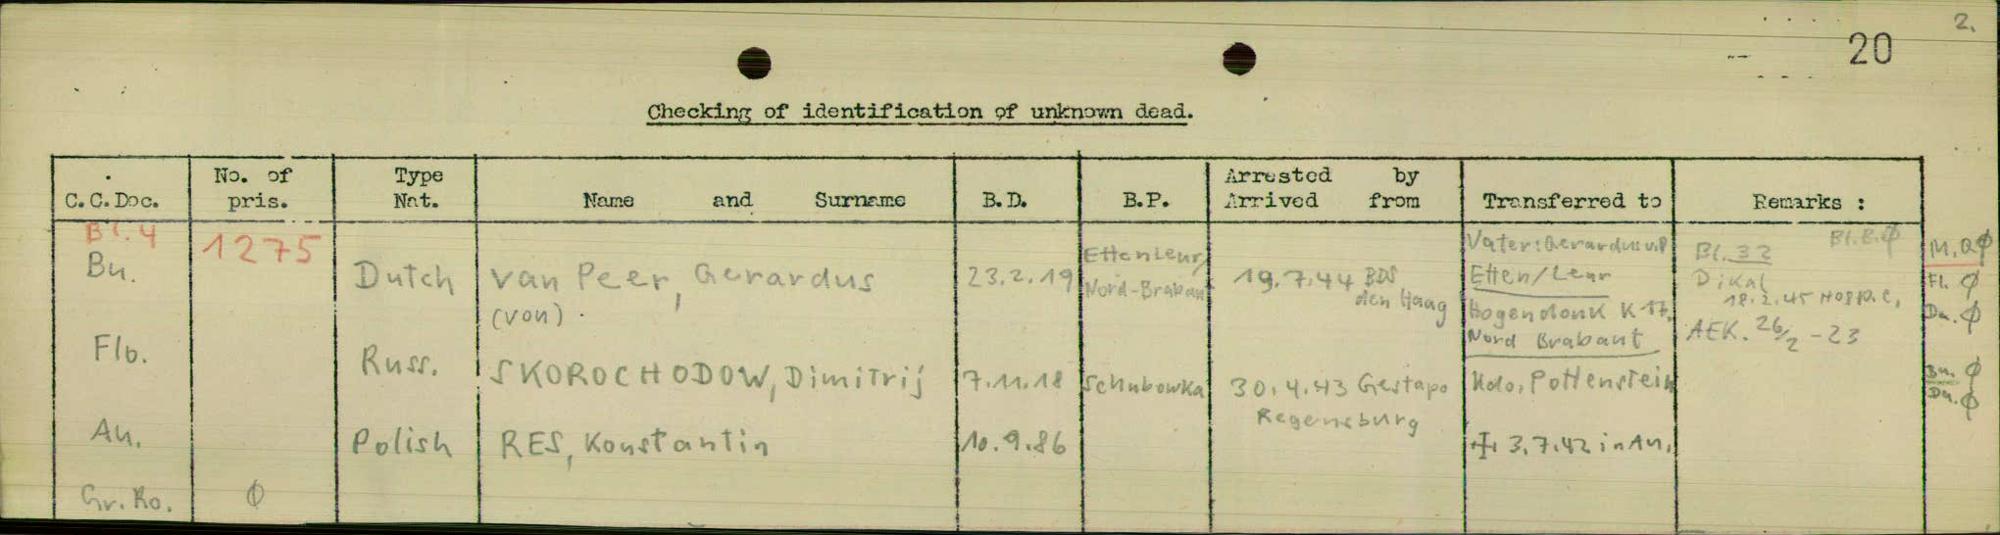 2.
20
Checking of identification of unknown dead.
C.C.Doc. No. of pris. Type Nat. Name and Surname B.D. B.P. Arrested by Arrived from Transferred to Remarks :
Bl.4 1275
Bu. Dutch van Peer, Gerardus (von) 23.2.19 Etten Leur/ Nord-Brabant 19.7.44 BDS den Haag Vater: Gerardus v.P Etten/Leur Hogendonk K 17. Nord Brabant Bl.B.Ø Bl. 32 Dikal 18.2.45 AEK. 26/2 - 23 M.Ø Fl. Ø Da. Ø
Flo. Russ. SKOROCHODOW, Dimitrij 7.11.18 Schubowka 30.4.43 Gestapo Regensburg Kdo. Pottenstein Bu. Ø Da. Ø
Au. Polish RES, Konstantin 10.9.86 3.7.42 in Au.
Gr. Ro. Ø